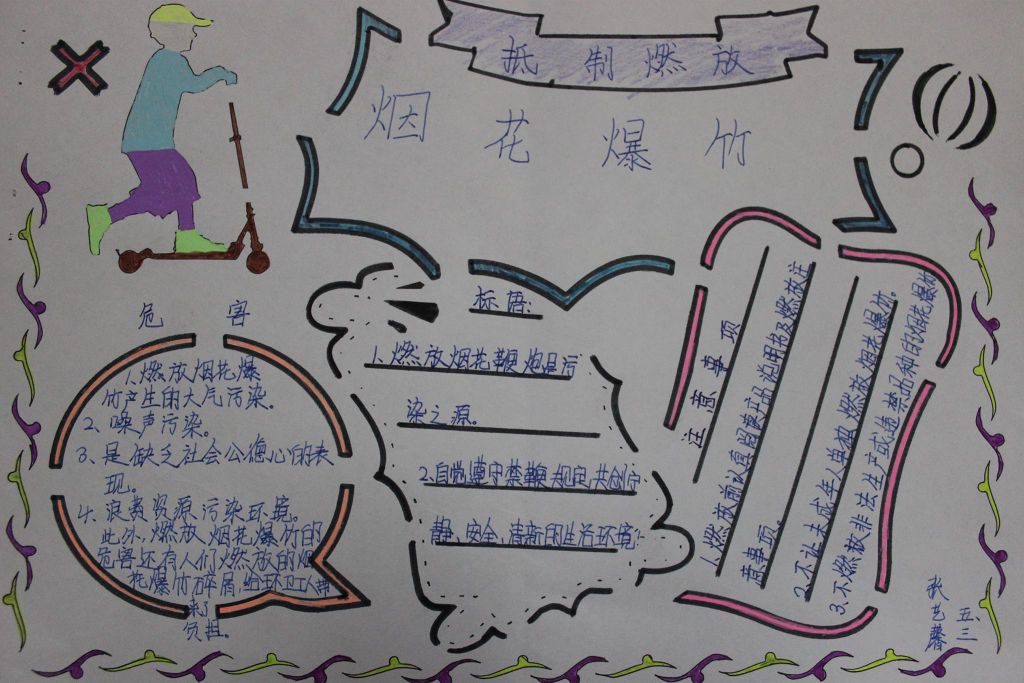 抵制燃放
烟花爆竹
危害
1、燃放烟花爆
竹产生的大气污染。
2、噪声污染。
3、是缺乏社会公德心的表
现。
4、浪费资源污染环境。
此外，燃放烟花爆竹的
危害还有人们燃放的烟
花爆竹碎屑，给环卫工人带
来了
负担。
标语:
1、燃放烟花鞭炮是污
染之源。
2、自觉遵守禁鞭规定，共创宁
静、安全、清新的生活环境
注意事项
1、燃放前认真阅读产品说明书及燃放注
意事项。
2、不让未成年人单独燃放烟花爆竹。
3、不燃放非法生产或违禁品种的烟花爆竹
五、三
张艺馨